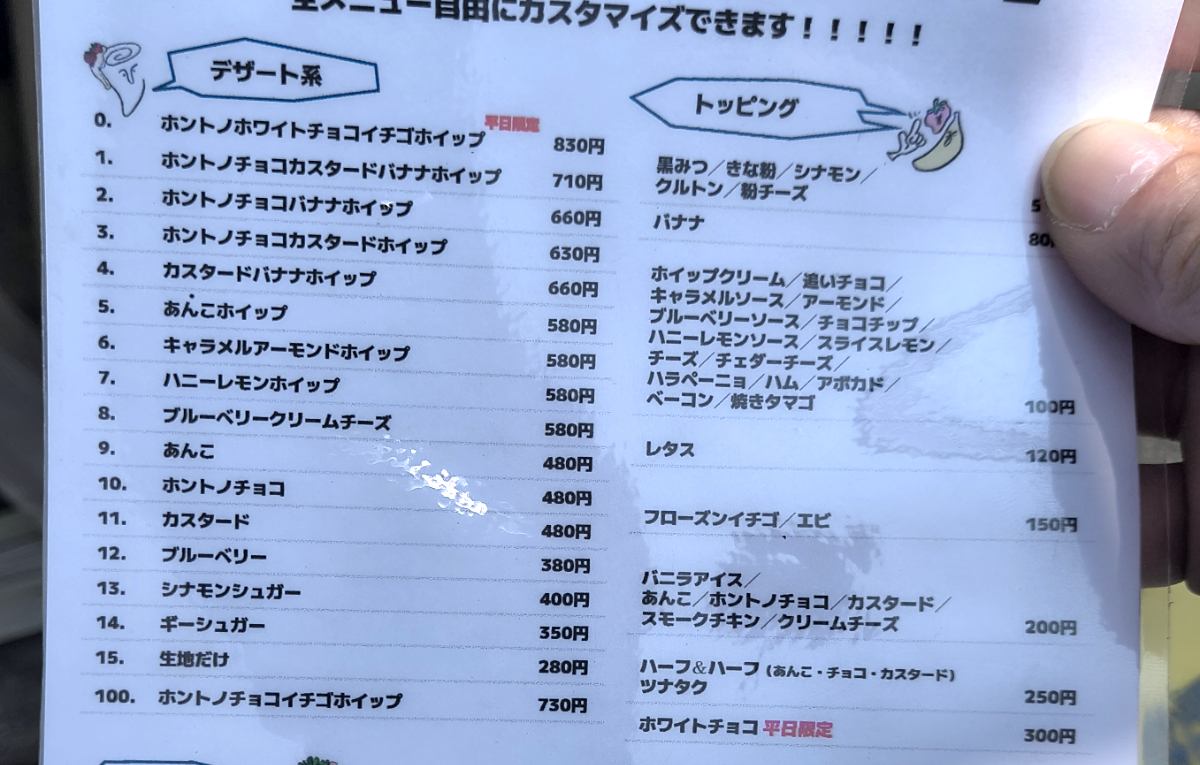 全メニュー自由にカスタマイズできます！！！！！
デザート系
0. ホントノホワイトチョコイチゴホイップ 平日限定 830円
1. ホントノチョコカスタードバナナホイップ 710円
2. ホントノチョコバナナホイップ 660円
3. ホントノチョコカスタードホイップ 630円
4. カスタードバナナホイップ 660円
5. あんこホイップ 580円
6. キャラメルアーモンドホイップ 580円
7. ハニーレモンホイップ 580円
8. ブルーベリークリームチーズ 580円
9. あんこ 480円
10. ホントノチョコ 480円
11. カスタード 480円
12. ブルーベリー 380円
13. シナモンシュガー 400円
14. ギーシュガー 350円
15. 生地だけ 280円
100. ホントノチョコイチゴホイップ 730円
トッピング
黒みつ／きな粉／シナモン／
クルトン／粉チーズ
バナナ
ホイップクリーム／追いチョコ／
キャラメルソース／アーモンド／
ブルーベリーソース／チョコチップ／
ハニーレモンソース／スライスレモン／
チーズ／チェダーチーズ／
ハラペーニョ／ハム／アボカド／
ベーコン／焼きタマゴ 100円
レタス 120円
フローズンイチゴ／エビ 150円
バニラアイス／
あんこ／ホントノチョコ／カスタード／
スモークチキン／クリームチーズ 200円
ハーフ&ハーフ（あんこ・チョコ・カスタード）
ツナタク 250円
ホワイトチョコ 平日限定 300円